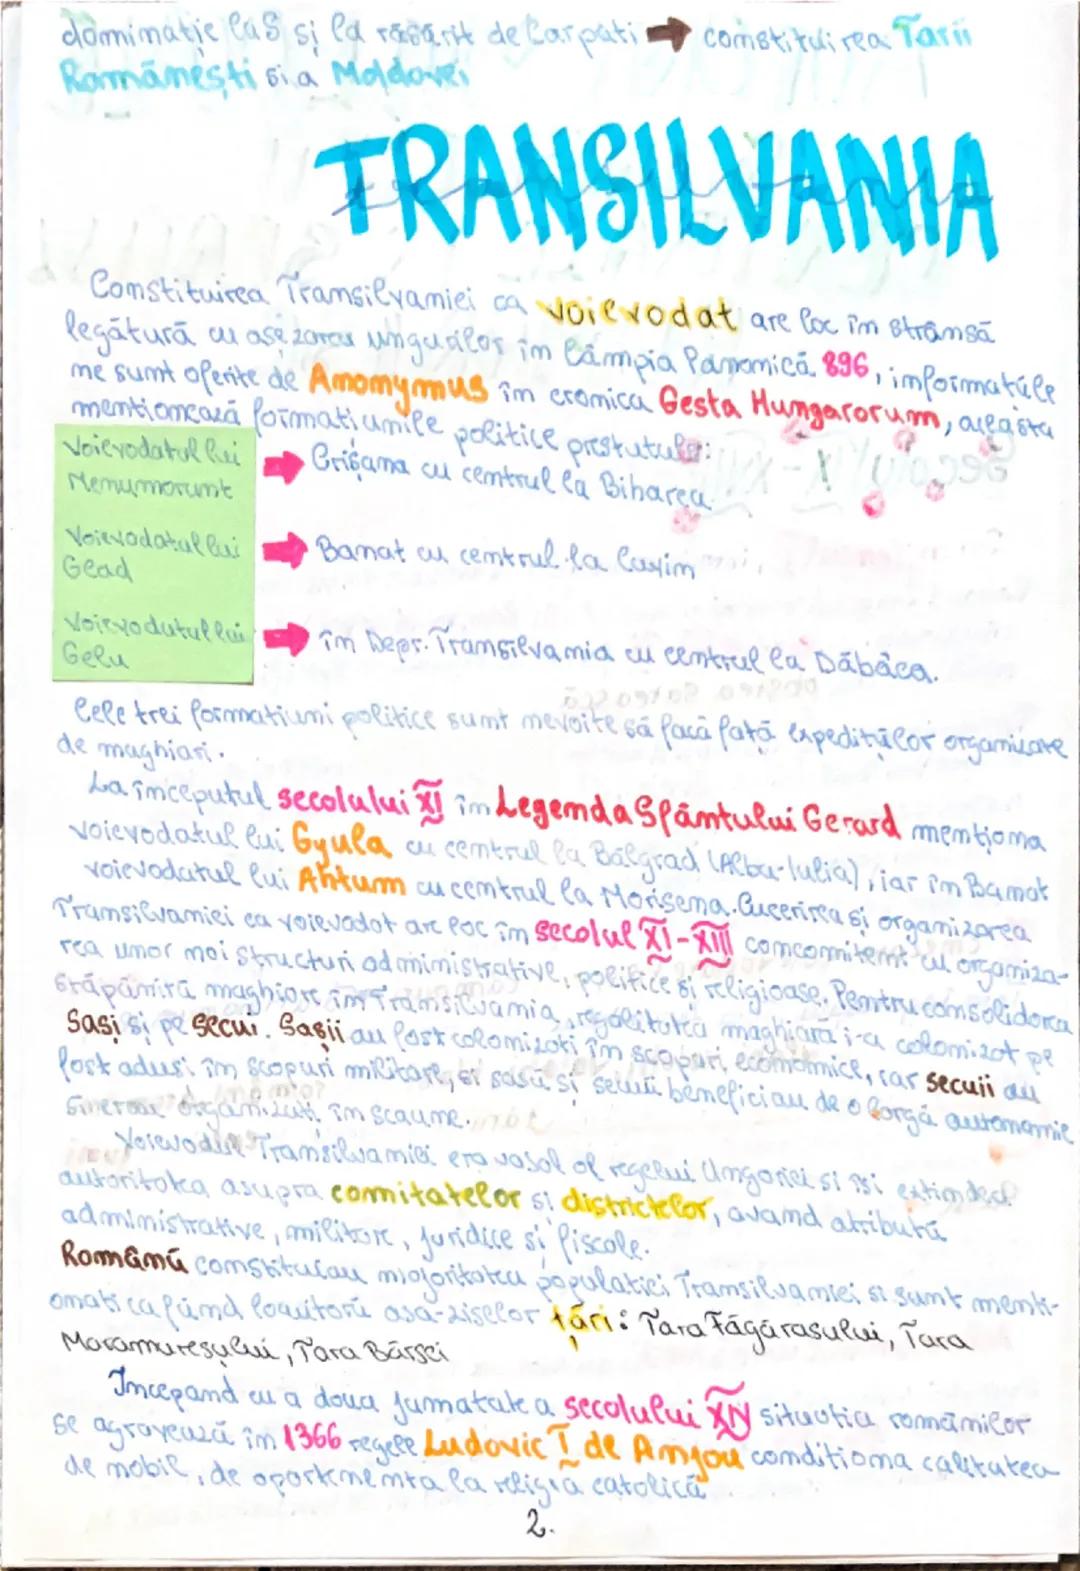 dominație la S și la răsărit de Carpați → constituirea Țării
Românești și a Moldovei
TRANSILVANIA
Constituirea Transilvaniei ca voievodat are loc în strânsă
legătură cu așezarea ungurilor în Câmpia Panonică 896, informațiile
ne sunt oferite de Anonymmus în cronica Gesta Hungarorum, aceasta
menționează formațiunile politice prstatule:
Voievodatul lui → Crișana cu centrul la Biharea
Menumorunt
Voievodatul lui → Banat cu centrul la Cuvin
Glad
Voievodatul lui → în Depr. Transilvania cu centrul la Dăbâca.
Gelu
Cele trei formațiuni politice sunt nevoite să facă față expedițiilor organizate
de maghiari.
La începutul secolului XI în Legenda Sfântului Gerard menționa
voievodatul lui Gyula cu centrul la Bălgrad (Alba-Iulia), iar în Banat
voievodatul lui Ahtum cu centrul la Morisena. Cucerirea și organizarea
Transilvaniei ca voievodat are loc în secolul XI-XIII concomitent cu organiza-
rea unor noi structuri administrative, politice și religioase. Pentru consolidarea
stăpânirii maghiare în Transilvania, regalitatea maghiară i-a colonizat pe
Sași și pe secui. Sașii au fost colonizați în scopuri economice, iar secuii au
fost aduși în scopuri militare, și sașii și secuii beneficiau de o largă autonomie
organizați în scaune.
Voievodul Transilvaniei era vasal al regelui Ungariei și își extindea
autoritatea asupra comitatelor și districtelor, având atribuții
administrative, militare, juridice și fiscale.
Românii constituiau majoritatea populației Transilvaniei și sunt menți-
onați ca fiind locuitorii așa-ziselor țări: Țara Făgărașului, Țara
Maramureșului, Țara Bârsei
Începand cu a doua jumatate a secolului XIV situația românilor
se agravează în 1366 regele Ludovic I de Anjou condiționa calitatea
de nobil, de apartenența la religia catolică
2.